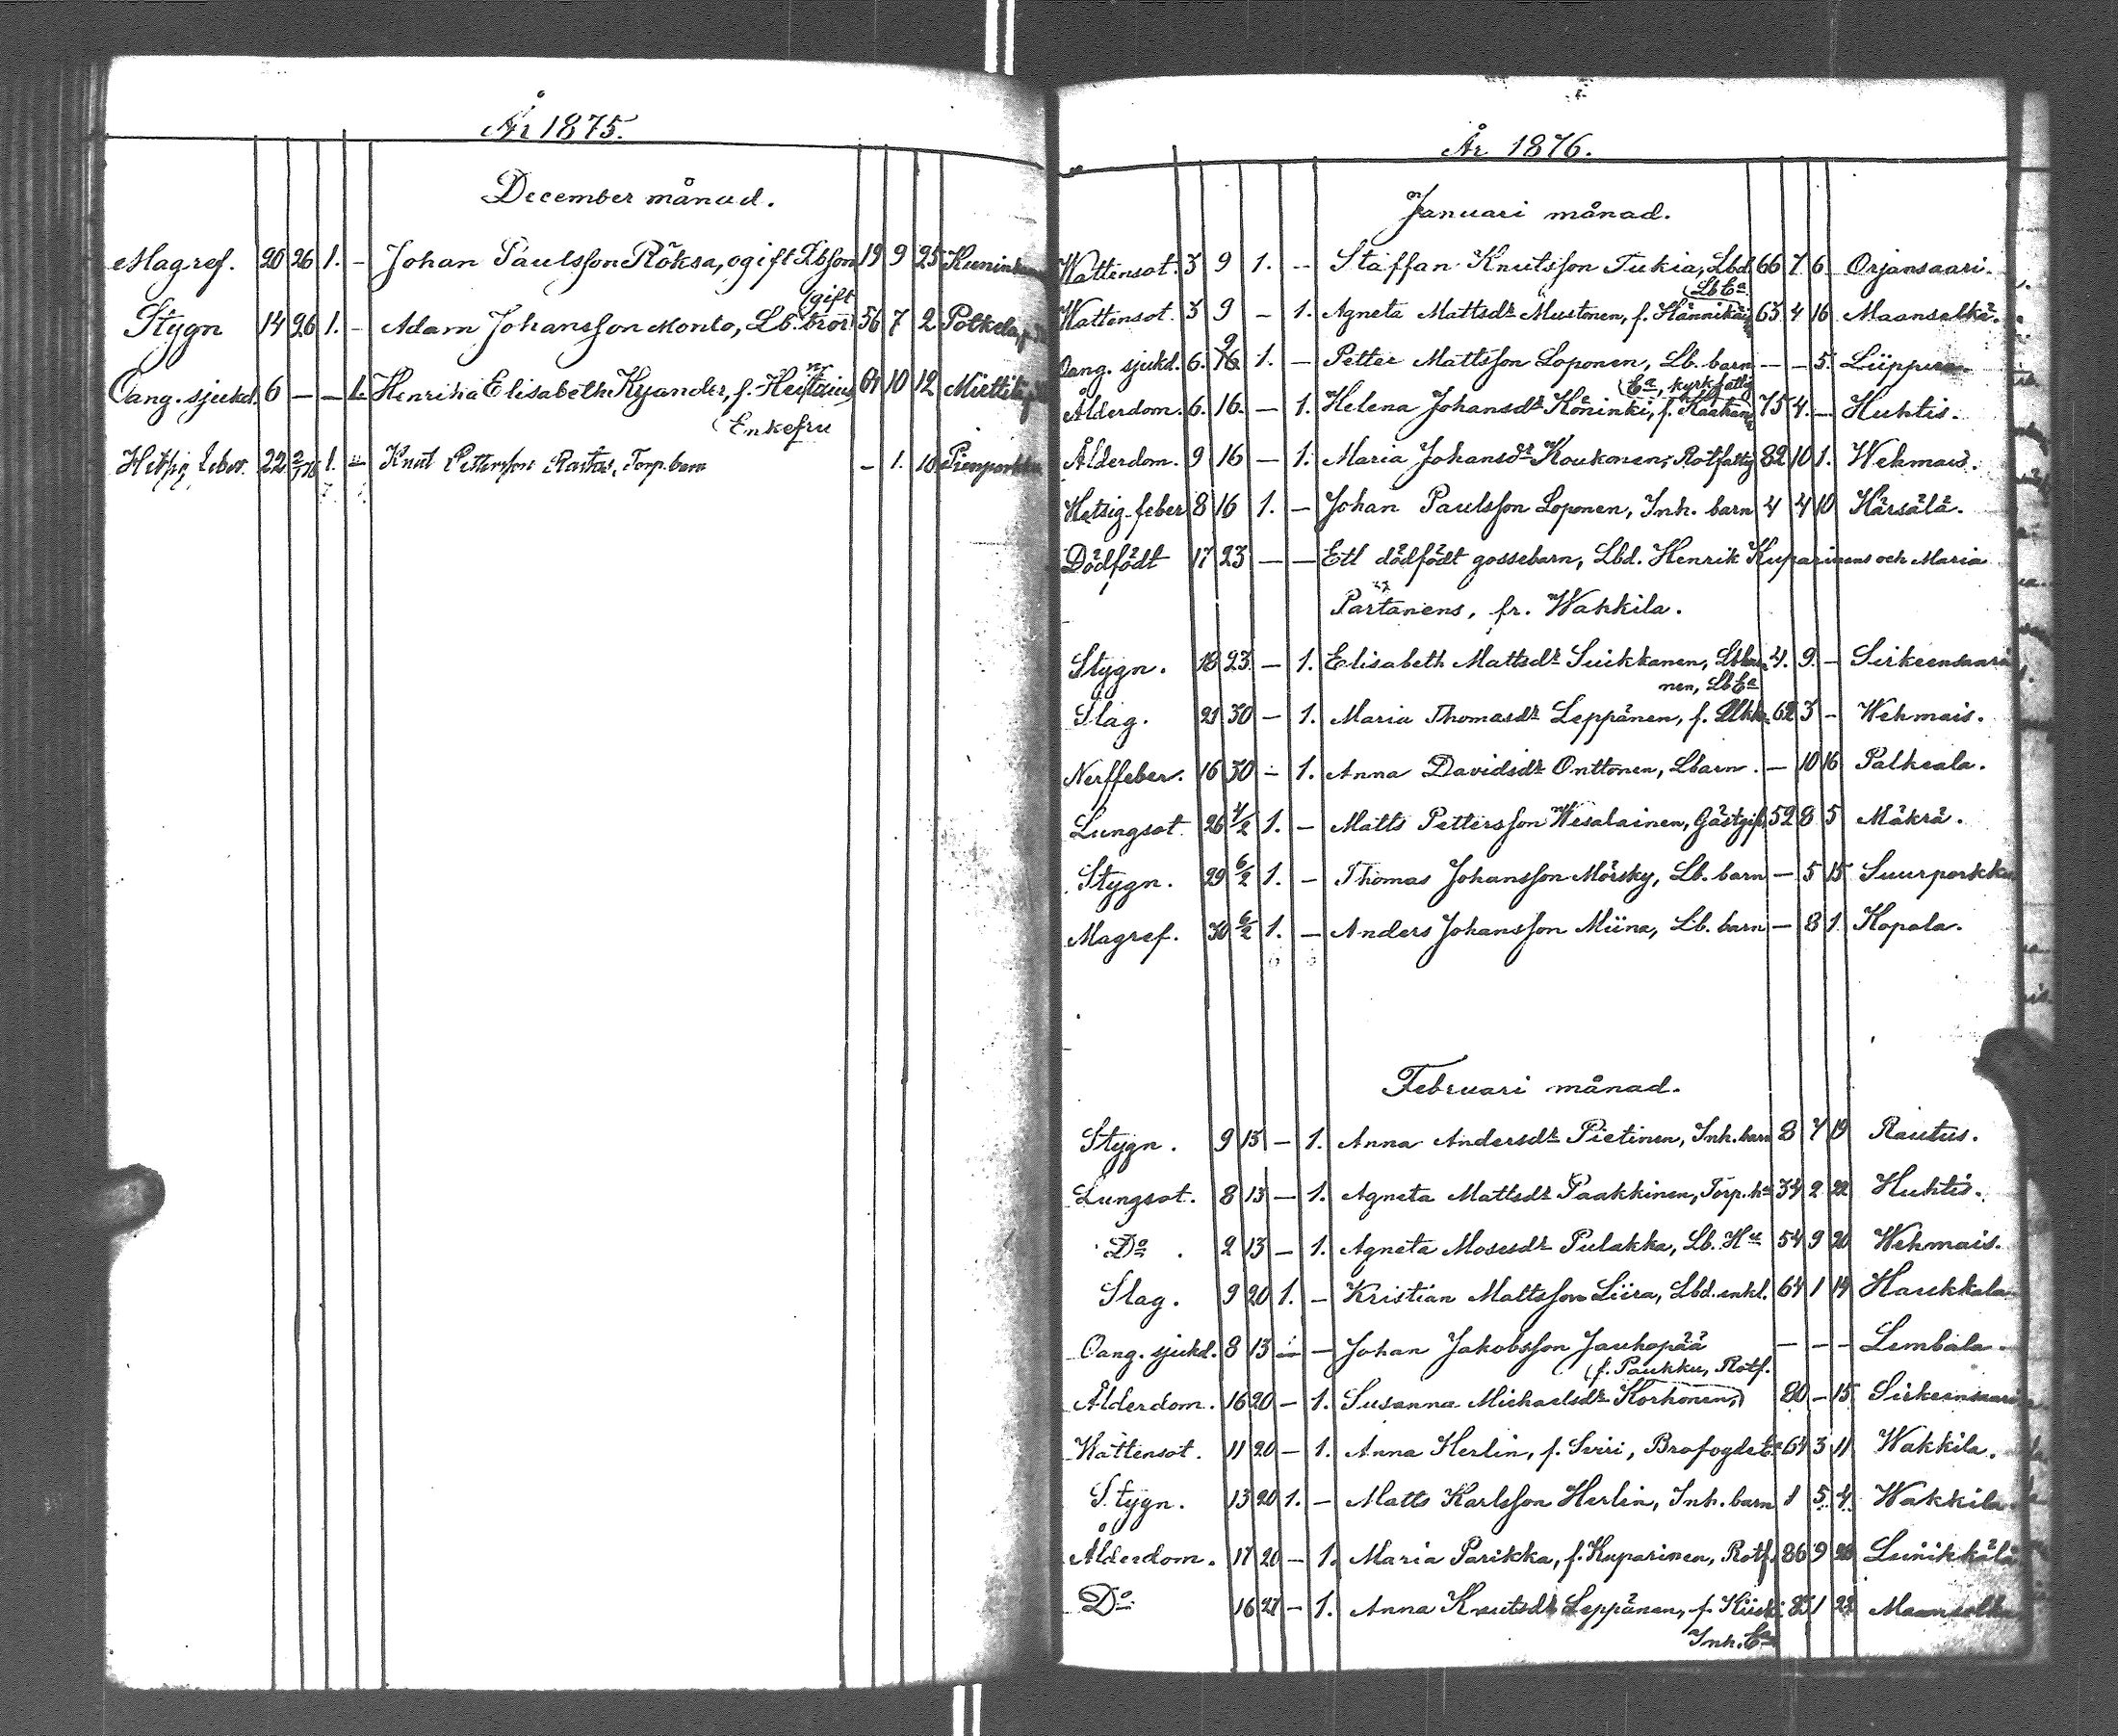 År 1875.
December månad.
Magref. 20 26 1. - Johan Paulsson Röksa, ogift Lbson 19 9 25
(gift
Stygn 14 26 1. - Adam Johansson Monto, Lb. bror 56 7 2 Polkela,
Oang. sjukd. 6 - - 1. Henrika Elisabeth Kyander, f. 64 10 12
(Enkefru
Hetsig feber. 22 2/1 76 1. - Knut Pettersson Rastas, Torp. barn - 1. 10
År 1876.
Januari månad.
Wattensot. 3 9 1. - Staffan Knutsson Tukia, Lbd 66 7 6 Orjansaari.
(LbEa.
Wattensot. 3 9 - 1. Agneta Mattsdr Mustonen, f. Hännikäi 63 4 16 Maanselkä.
Oang. sjukd. 6. 9 1. - Petter Mattsson Loponen, Lb. barn - - 5.
(Ea, kyrkfattig
Ålderdom. 6. 16. - 1. Helena Johansdr Köninki, f. 75 4. - Huhtis.
Ålderdom. 9 16 - 1. Maria Johansdr Koukonen, Rotfattig 82 10 1. Wehmais.
Hetsig feber 8 16 1. - Johan Paulsson Loponen, Inh. barn 4 4 10 Härsälä.
Dödfödt 17 23 - - Ett dödfödt gossebarn, Lbd. Henrik Kuparinens och Maria
Partanens, fr. Wahkila.
Stygn. 18 23 - 1. Elisabeth Mattsdr Suikkanen, 4. 9. - Sirkeensaari
nen, LbEa
Slag. 21 30 - 1. Maria Thomasdr Leppänen, f. 62 3 - Wehmais.
Nerffeber. 16 30 - 1. Anna Davidsdr Onttonen, Lbarn. - 10 16 Palkeala.
Lungsot. 26 4/2 1. - Matts Pettersson Wesalainen, Gästgif. 52 8 5 Mäkrä.
Stygn. 29 6/2 1. - Thomas Johansson Mörsky, Lb. barn - 5 15 Suurporkku
Magref. 30 6/2 1. - Anders Johansson Miina, Lb. barn - 8 1. Kopala.
Februari månad.
Stygn. 9 13 - 1. Anna Andersdr Pietinen, Inh. barn 8 7 19 Rautus.
Lungsot. 8 13 - 1. Agneta Mattsdr Paakkinen, Torp. ha 34 2 22 Huhtis.
Do. 2 13 - 1. Agneta Mosesdr Pulakka, Lb. Hu 54 9 20 Wehmais.
Slag. 9 20 1. - Kristian Mattsson Liira, Lbd. enkl. 64 1 14 Haukkala
Oang. sjukd. 8 13 - - Johan Jakobsson Jauhopää - - - Lembala.
(f. Paukku, Rotf.
Ålderdom. 16 20 - 1. Susanna Michaelsdr Korhonen,) 80 - 15 Sirkeensaari
Wattensot. 11 20 - 1. Anna Herlin, f. Sviri, Brofogde Ea 64 3 11 Wakkila.
Stygn. 13 20 1. - Matts Karlsson Herlin, Inh. barn 1 5. 4. Wakkila
Ålderdom. 17 20 - 1. Maria Parikka, f. Kuparinen, Rotf. 86 9 Leinikkälä
Do 16 27 - 1. Anna Knutsdr Leppänen, f. Kiiski 1 23 Maanselkä
Inh. Ea